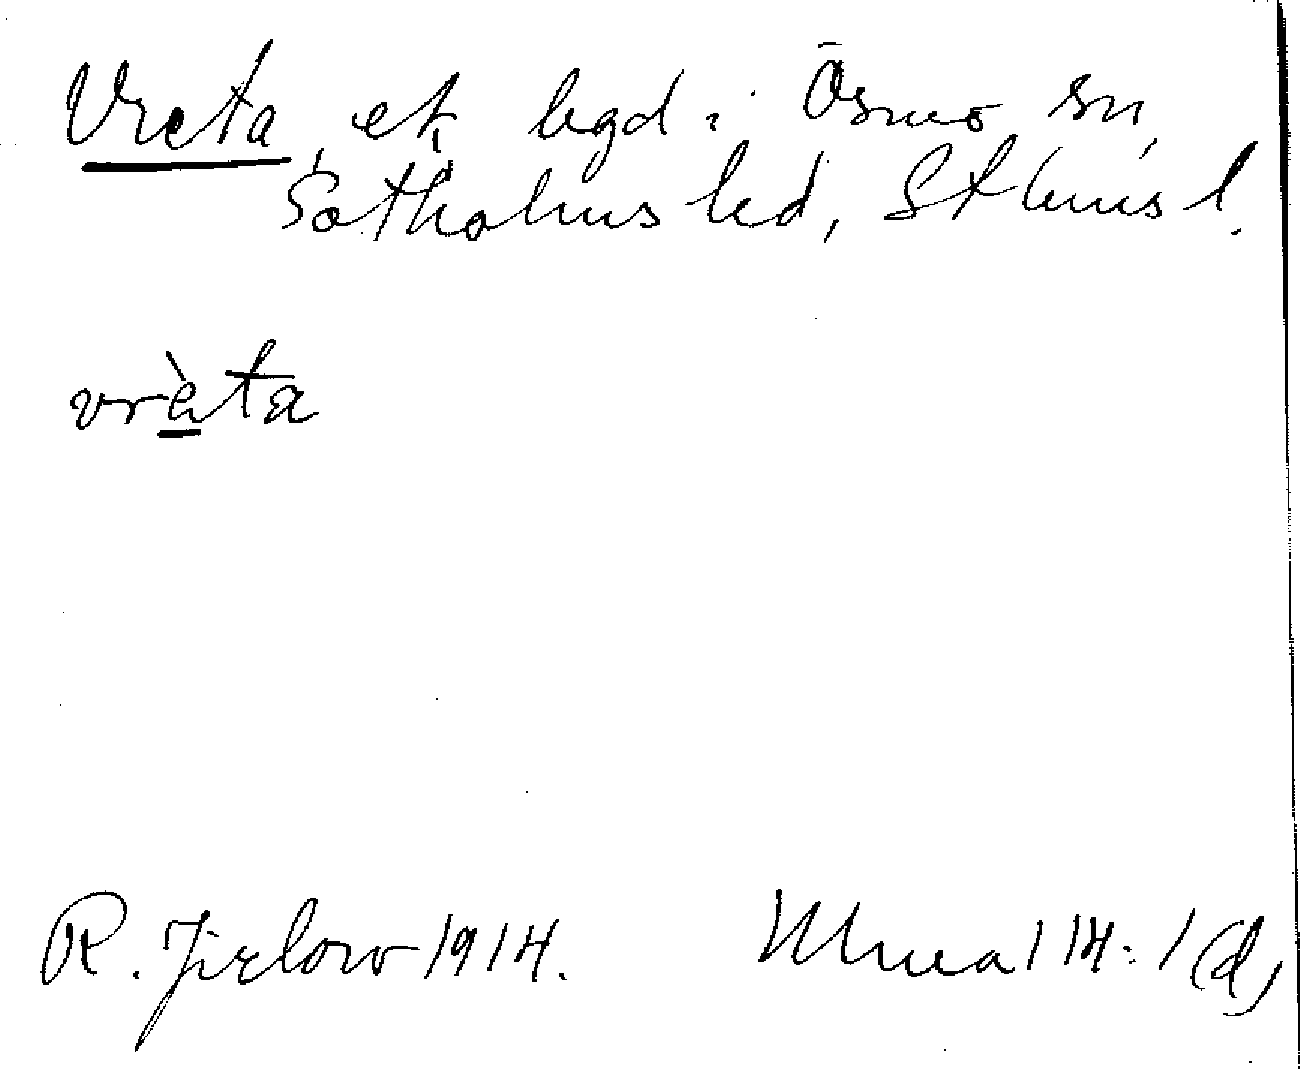 Vreta, ek, hgd. i Ösmo sn,
Sotholms hd, Sthms l.
vrèta
R. Jirlow 1914. 114:1(d)